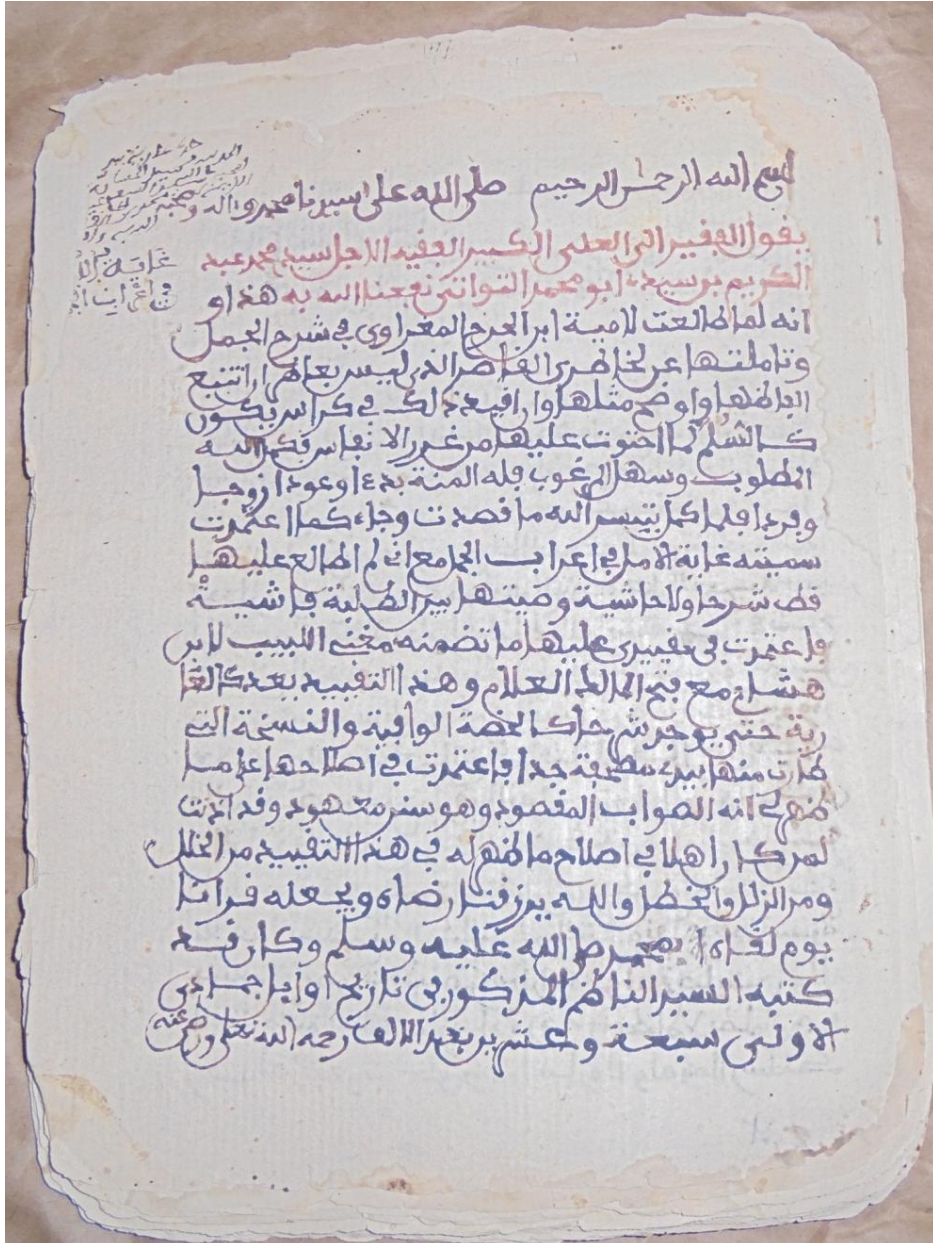 بسم الله الرحمن الرحيم صلى الله على سيدنا محمد وءاله وصحبه
يقول الفقير الى العلى الكبير الفقيه الاجل سيد محمد عبد
الكريم بن سيد ابو محمد التواتى نفعنا الله به هذا و
انه لما طالعت لامية ابن المجراد المغراوى في شرح الجمل
وتاملتها عن لخاطرى الفاصر الذى ليس بعاطر ان اتتبع
الفاظها واوضح مثلها وان افيد ذلك في كراس يكون
كالسلم لما احتوت عليها من غرر الانفاس فكمل الله
المطلوب وسهل المرغوب فله المنة بدءا وعودا زوجا
وفردا فلما كما يتيسر الله ما قصدت وجاء كما اعتمدت
سميته غاية الامل في اعراب الجمل مع انى لم اطالع عليها
قط شرحا ولا حاشية وضيتها بين الطلبة فاشية
فاعتمدت في تقييدى عليها ما تضمنه مغنى اللبيب لابن
هشام مع فتح المالك العلام وهذا التقييد بعد كالغا
رية حتى يوجد شرحا كالخصة الوافية والنسخة التى
طارت منها بيدى مصحفة جدا فاعتمدت في اصلاحها على ما
ظهر لى انه الصواب المقصود وهو سنن معهود وقد اذنت
لمن كان اهلا في اصلاح ما ظهر له في هذا التقييد من الخلل
ومن الزلل والخطل والله يرزقنا رضاه ويجعله قرانا
يوم لقاه بمحمد صلى الله عليه وسلم وكان قيد
كتبه السيد الناظم المذكور في تاريخ اوايل جمادى
الاولى سبعة وعشرين بعد الالف رحمه الله تعلى ورضى عنه
غاية الا
في اعراب ال